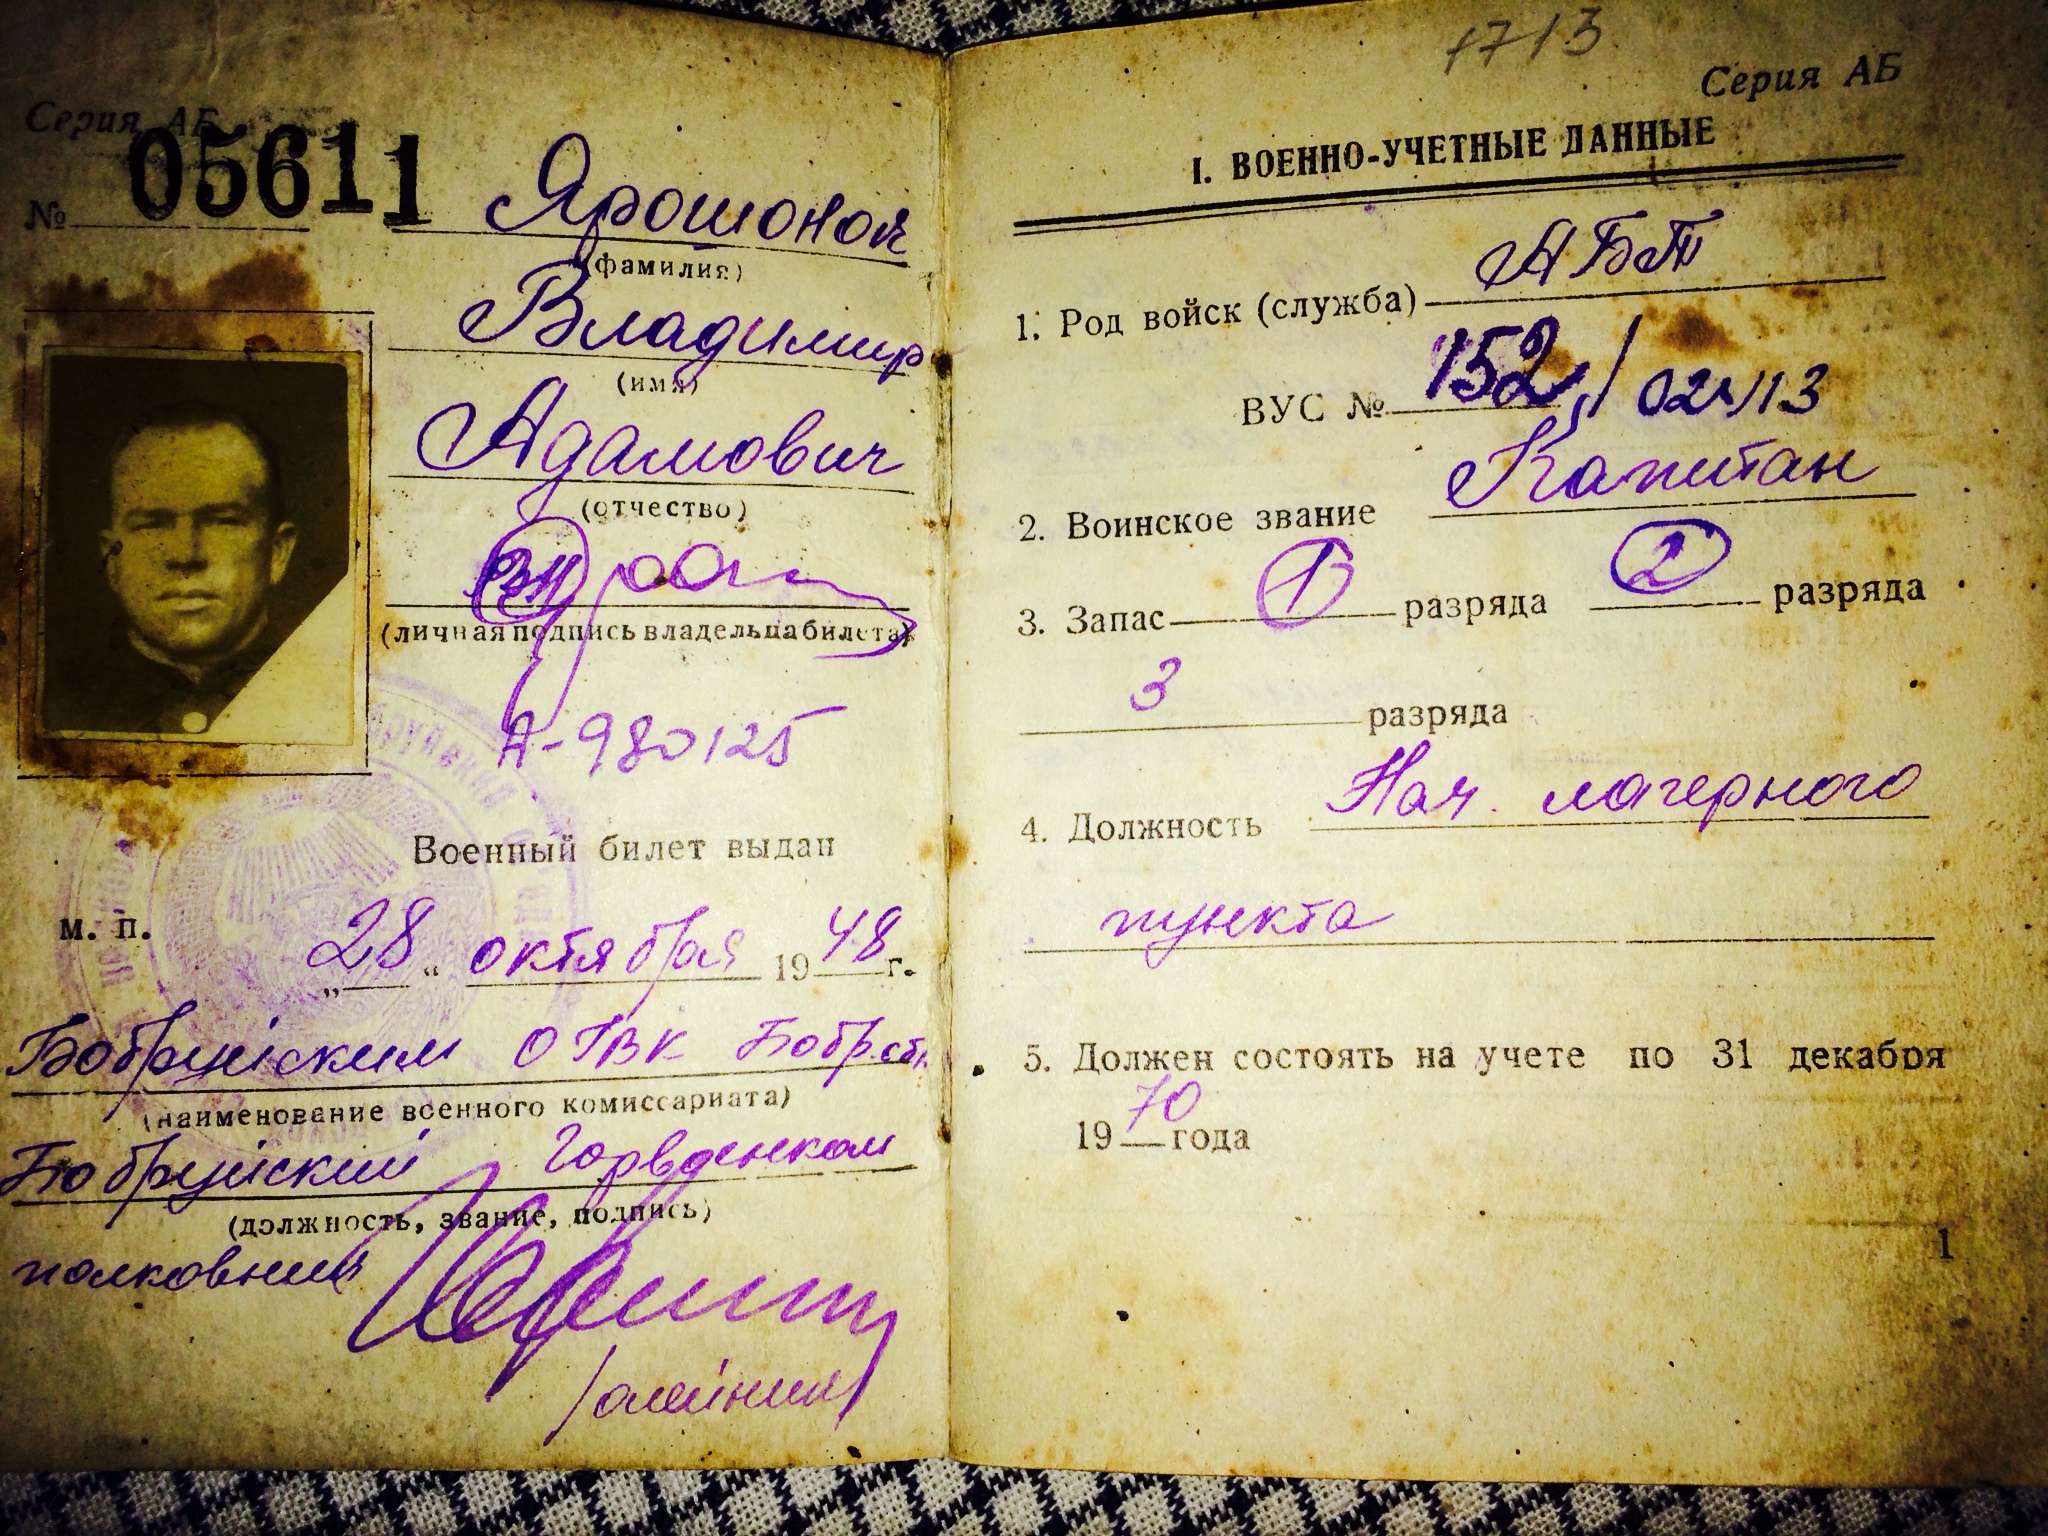 Серия АБ
№ 05611
Ярошонок
(фамилия)
Владимир
(имя)
Адамович
(отчество)
(личная подпись владельца билета)
А-980125
Военный билет выдан
м. п.
„28“ октября 1948 г.
Бобруйским ОГВК Бобр.обл.
(наименование военного комиссариата)
Бобруйский Горвоенком
(должность, звание, подпись)
полковник
/Олейник/
1713
Серия АБ
I. ВОЕННО-УЧЕТНЫЕ ДАННЫЕ
1. Род войск (служба) АБТ
ВУС № 152/
2. Воинское звание Капитан
3. Запас 1 разряда 2 разряда
3 разряда
4. Должность Нач. лагерного
пункта
5. Должен состоять на учете по 31 декабря
1970 года
1